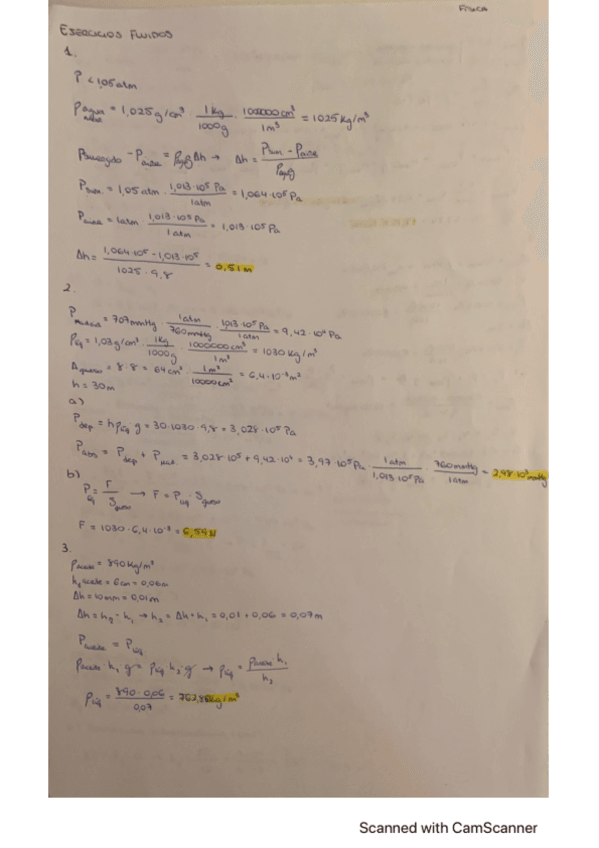 FÍSICA
EJERCICIOS FLUIDOS
1.
P < 1,05 atm
ρ agua = 1,025 g/cm³ · 1 kg / 1000 g · 1000000 cm³ / 1 m³ = 1025 kg/m³
- P = ρ g Δh → Δh =
P = 1,05 atm · 1,013·10⁵ Pa / 1 atm = 1,064·10⁵ Pa
P = 1 atm · 1,013·10⁵ Pa / 1 atm = 1,013·10⁵ Pa
Δh = 1,064·10⁵ - 1,013·10⁵ / 1025 · 9,8 = 0,51 m
2.
= 707 mmHg · 1 atm / 760 mmHg · 1,013·10⁵ Pa / 1 atm = 9,42·10⁴ Pa
ρ líq = 1,03 g/cm³ · 1 kg / 1000 g · 1000000 cm³ / 1 m³ = 1030 kg/m³
= 8·8 = 64 cm² · 1 m² / 10000 cm² = 6,4·10⁻³ m²
h = 30 m
a)
P dep = h ρ líq g = 30·1030·9,8 = 3,028·10⁵ Pa
= P dep + = 3,028·10⁵ + 9,42·10⁴ = 3,97·10⁵ Pa · 1 atm / 1,013·10⁵ Pa · 760 mmHg / 1 atm = 2,98·10³ mmHg
b)
P = F / S → F = P · S
F = 1030 · 6,4·10⁻³ = 6,59 N
3.
ρ aceite = 890 kg/m³
h₁ aceite = 6 cm = 0,06 m
Δh = 10 mm = 0,01 m
Δh = h₂ - h₁ → h₂ = Δh + h₁ = 0,01 + 0,06 = 0,07 m
P aceite = P líq
ρ aceite · h₁ · g = ρ líq · h₂ · g → ρ líq = ρ aceite · h₁ / h₂
ρ líq = 890 · 0,06 / 0,07 = kg/m³
Scanned with CamScanner